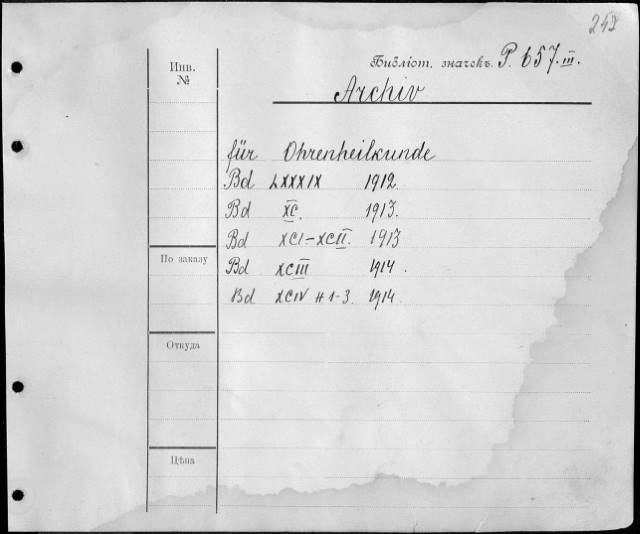 242
Инв.
№
Библіот. значекъ. P. 657.III.
Archiv
für Ohrenheilkunde
Bd LXXXIX 1912.
Bd XC. 1913.
Bd XCI-XCII. 1913
Bd XCIII 1914.
Bd XCIV H 1-3. 1914.
По заказу
Откуда
Цѣна